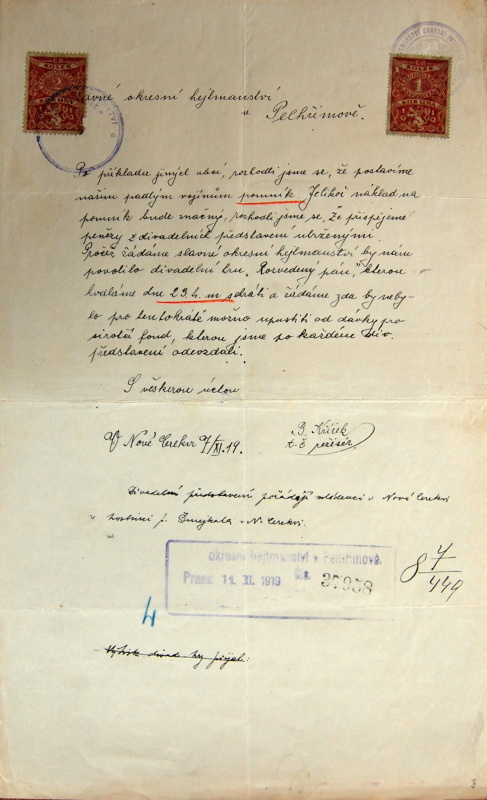 Slavné okresní hejtmanství
v Pelhřimově.
ČS
KOLEK
2
KORUNY
ČS
KOLEK
1
KORUNA
Po příkladu jiných obcí, rozhodli jsme se, že postavíme
našim padlým vojínům pomník. Jelikož náklad na
pomník bude značný, rozhodli jsme se, že přispějeme
penězy z divadelních představení utrženými.
Pročež žádáme slavné okresní hejtmanství by nám
povolilo divadelní hru „Rozvedený pán", kterou
hodláme dne 23. t. m. sehráti a žádáme zda by neby-
lo pro tentokráte možno upustiti od dávky pro
sirotčí fond, kterou jsme po každém div.
představení odevzdali.
S veškerou úctou
V Nové Cerekvi 7/XI. 19.
B. Křížek
t. č. režisér.
Divadelní představení pořádají mládenci v Nové Cerekvi
v hostinci p. Smejkala v N. Cerekvi.
okresní hejtmanství v Pelhřimově.
Praes: 11. XI. 1919 Čís. 37058
8 7/449
4
Výtisk divad. hry přijal:
3